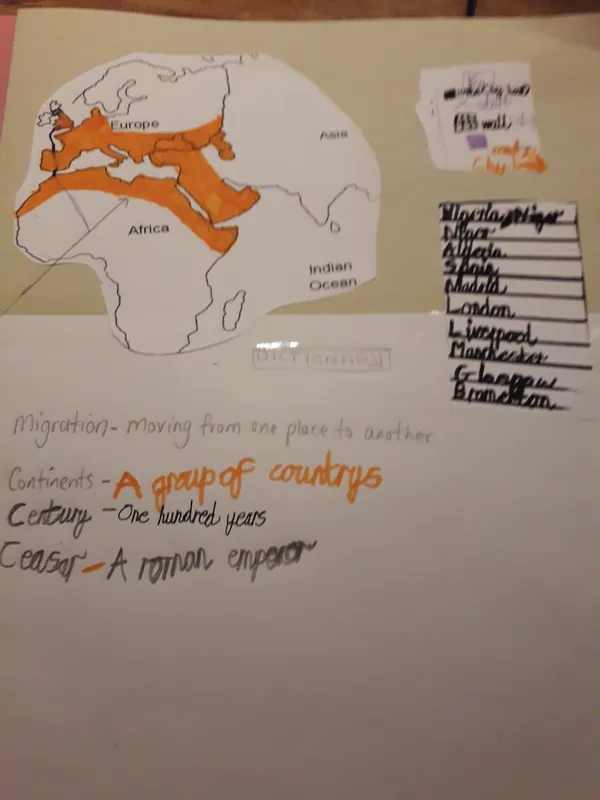 Europe
Asia
Africa
Indian
Ocean
wall
Niger
Algeria
Spain
Madrid
London
Liverpool
Manchester
Glasgow
DICTIONARY
Migration - moving from one place to another
Continents - A group of countrys
Century - One hundred years
Ceasar - A roman emperor